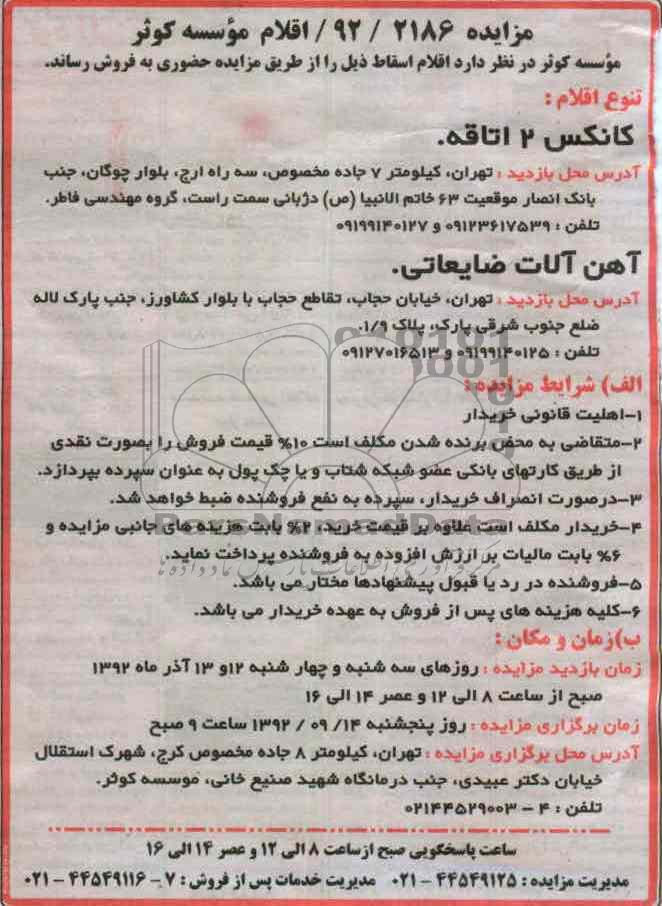 مزایده ۲۱۸۶ / ۹۲ / اقلام مؤسسه کوثر
مؤسسه کوثر در نظر دارد اقلام اسقاط ذیل را از طریق مزایده حضوری به فروش رساند.
تنوع اقلام :
کانکس ۲ اتاقه.
آدرس محل بازدید : تهران، کیلومتر ۷ جاده مخصوص، سه راه ارج، بلوار چوگان، جنب
بانک انصار موقعیت ۶۳ خاتم الانبیا (ص) دژبانی سمت راست، گروه مهندسی فاطر.
تلفن : ۰۹۱۲۳۶۱۷۵۳۹ و ۰۹۱۹۹۱۴۰۱۲۷
آهن آلات ضایعاتی.
آدرس محل بازدید : تهران، خیابان حجاب، تقاطع حجاب با بلوار کشاورز، جنب پارک لاله
ضلع جنوب شرقی پارک، پلاک ۱/۹.
تلفن : ۰۹۱۹۹۱۴۰۱۲۵ و ۰۹۱۲۷۰۱۶۵۱۳
الف) شرایط مزایده :
۱-اهلیت قانونی خریدار
۲-متقاضی به محض برنده شدن مکلف است ۱۰% قیمت فروش را بصورت نقدی
از طریق کارتهای بانکی عضو شبکه شتاب و یا چک پول به عنوان سپرده بپردازد.
۳-درصورت انصراف خریدار، سپرده به نفع فروشنده ضبط خواهد شد.
۴-خریدار مکلف است علاوه بر قیمت خرید، ۲% بابت هزینه های جانبی مزایده و
۶% بابت مالیات بر ارزش افزوده به فروشنده پرداخت نماید.
۵-فروشنده در رد یا قبول پیشنهادها مختار می باشد.
۶-کلیه هزینه های پس از فروش به عهده خریدار می باشد.
ب)زمان و مکان :
زمان بازدید مزایده : روزهای سه شنبه و چهار شنبه ۱۲و ۱۳ آذر ماه ۱۳۹۲
صبح از ساعت ۸ الی ۱۲ و عصر ۱۴ الی ۱۶
زمان برگزاری مزایده : روز پنجشنبه ۱۴/ ۰۹ / ۱۳۹۲ ساعت ۹ صبح
آدرس محل برگزاری مزایده : تهران، کیلومتر ۸ جاده مخصوص کرج، شهرک استقلال
خیابان دکتر عبیدی، جنب درمانگاه شهید صنیع خانی، موسسه کوثر.
تلفن : ۴ - ۰۲۱۴۴۵۲۹۰۰۳
ساعت پاسخگویی صبح ازساعت ۸ الی ۱۲ و عصر ۱۴ الی ۱۶
مدیریت مزایده : ۴۴۵۴۹۱۲۵ - ۰۲۱ مدیریت خدمات پس از فروش : ۷ - ۴۴۵۴۹۱۱۶ - ۰۲۱